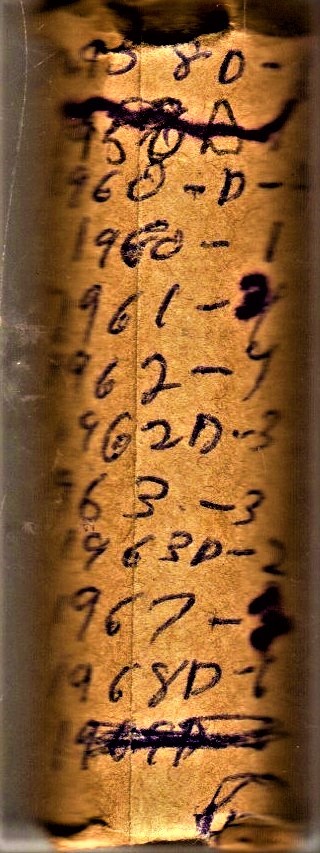 1958D-
1960-D-
1960-1
1961-
1962-4
1962D-3
1963-3
1963D-2
1967-
1968D-